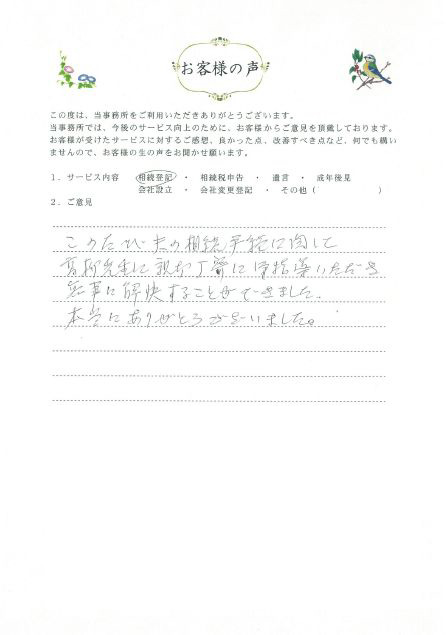 お客様の声
この度は、当事務所をご利用いただきありがとうございます。
当事務所では、今後のサービス向上のために、お客様からご意見を頂戴しております。
お客様が受けたサービスに対するご感想、良かった点、改善すべき点など、何でも構い
ませんので、お客様の生の声をお聞かせ願います。
1．サービス内容　相続登記　・　相続税申告　・　遺言　・　成年後見
会社設立　・　会社変更登記　・　その他（　　　　　　）
2．ご意見
このたび夫の相続手続に関して
先生に親切丁寧に御指導いただき
無事に解決することができました。
本当にありがとうございました。